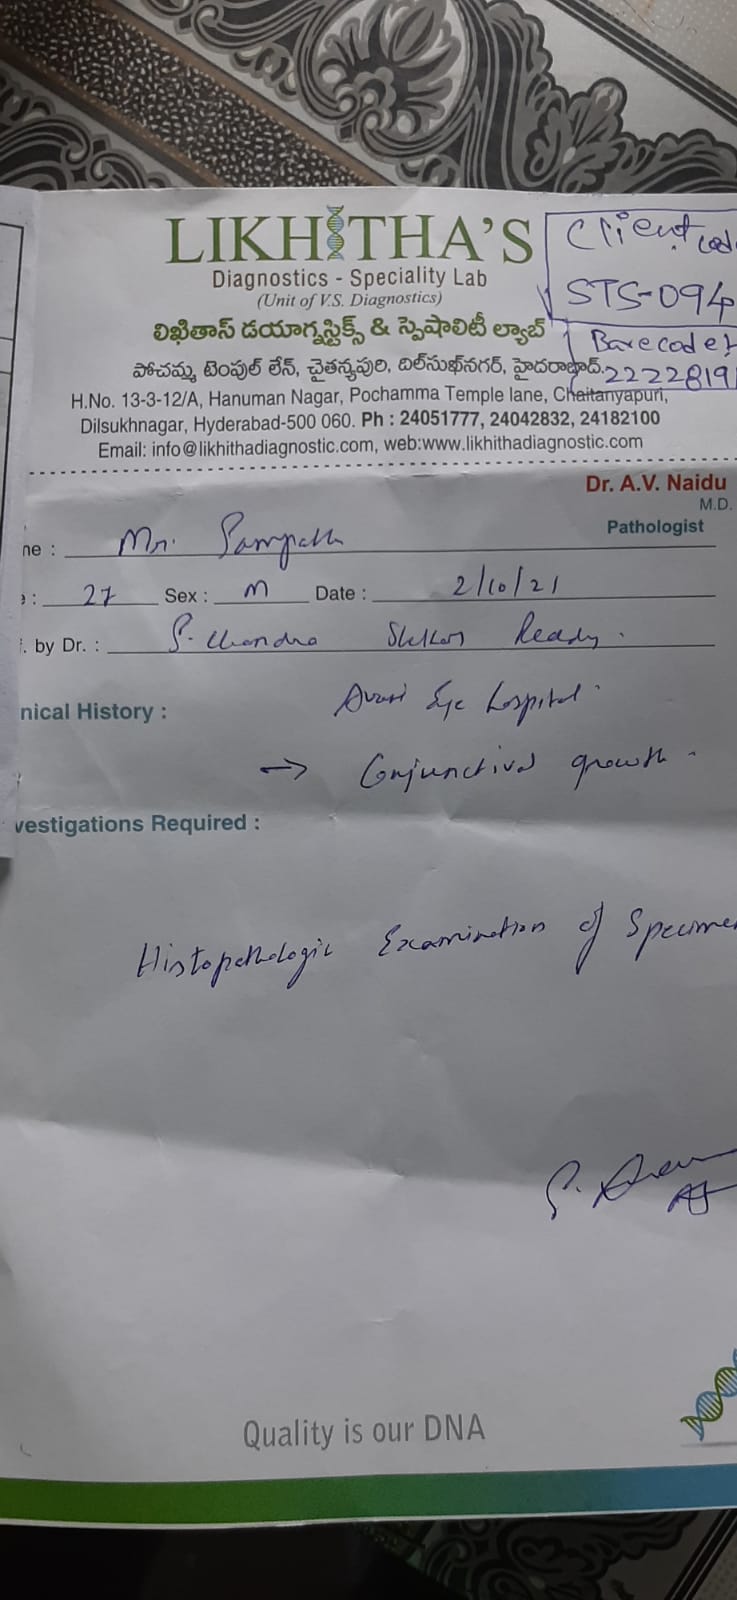 LIKHITHA'S
Diagnostics - Speciality Lab
(Unit of V.S. Diagnostics)
లిఖితాస్ డయాగ్నస్టిక్స్ & స్పెషాలిటీ ల్యాబ్
పోచమ్మ టెంపుల్ లేన్, చైతన్యపురి, దిల్‌సుఖ్‌నగర్, హైదరాబాద్.
H.No. 13-3-12/A, Hanuman Nagar, Pochamma Temple lane, Chaitanyapuri,
Dilsukhnagar, Hyderabad-500 060. Ph : 24051777, 24042832, 24182100
Email: info@likhithadiagnostic.com, web:www.likhithadiagnostic.com
Client cod
STS-094
Barecode
2222819
Dr. A.V. Naidu
M.D.
Pathologist
ne : Mr. Sampath
: 27 Sex : M Date : 2/10/21
. by Dr. : S. Chandra Ready.
nical History : Eye hospital.
→ Conjunctival growth.
vestigations Required :
Histopathologic Examination of Specime
Quality is our DNA